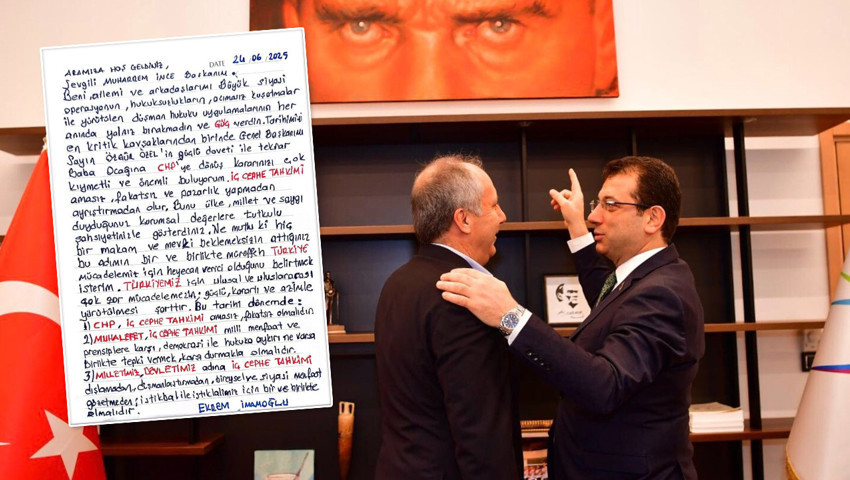 DATE 24.06.2025
ARAMIZA HOŞ GELDİNİZ,
Sevgili MUHARREM İNCE Başkanım.
Beni, ailemi ve arkadaşlarımı Büyük siyasi
operasyonun, hukuksuzlukların, acımasız kuşatmalar
ile yürütülen düşman hukuku uygulamalarının her
anında yalnız bırakmadın ve GÜÇ verdin. Tarihimizi
en kritik kavşaklarından birinde Genel Başkanımı
Sayın ÖZGÜR ÖZEL'in güçlü daveti ile tekrar
Baba Ocağına CHP'ye dönüş kararınızı çok
kıymetli ve önemli buluyorum. İÇ CEPHE TAHKİMİ
amasız, fakatsız ve pazarlık yapmadan
ayrıştırmadan olur. Bunu ülke, millet ve saygı
duyduğunuz kurumsal değerlere tutkulu
şahsiyetinizle gösterdiniz. Ne mutlu ki hiç
bir makam ve mevki beklemeksizin attığınız
bu adımın bir ve birlikte müreffeh TÜRKİYE
mücadelemiz için heyecan verici olduğunu belirtmek
isterim. TÜRKİYEMİZ için ulusal ve uluslararası
çok zor mücadelemizin; güçlü, kararlı ve azimle
yürütülmesi şarttır. Bu tarihi dönemde:
1) CHP, İÇ CEPHE TAHKİMİ amasız, fakatsız olmalıdır.
2) MUHALEFET, İÇ CEPHE TAHKİMİ milli menfaat ve
prensiplere karşı, demokrasi ile hukuka aykırı ne varsa
birlikte tepki vermek, karşı durmakla olmalıdır.
3) MİLLETİMİZ, DEVLETİMİZ adına İÇ CEPHE TAHKİMİ
dışlamadan, düşmanlaştırmadan, bireysel ve siyasi menfaat
gözetmeden; istikbal ile istiklalimiz için bir ve birlikte
olmalıdır. EKREM İMAMOĞLU